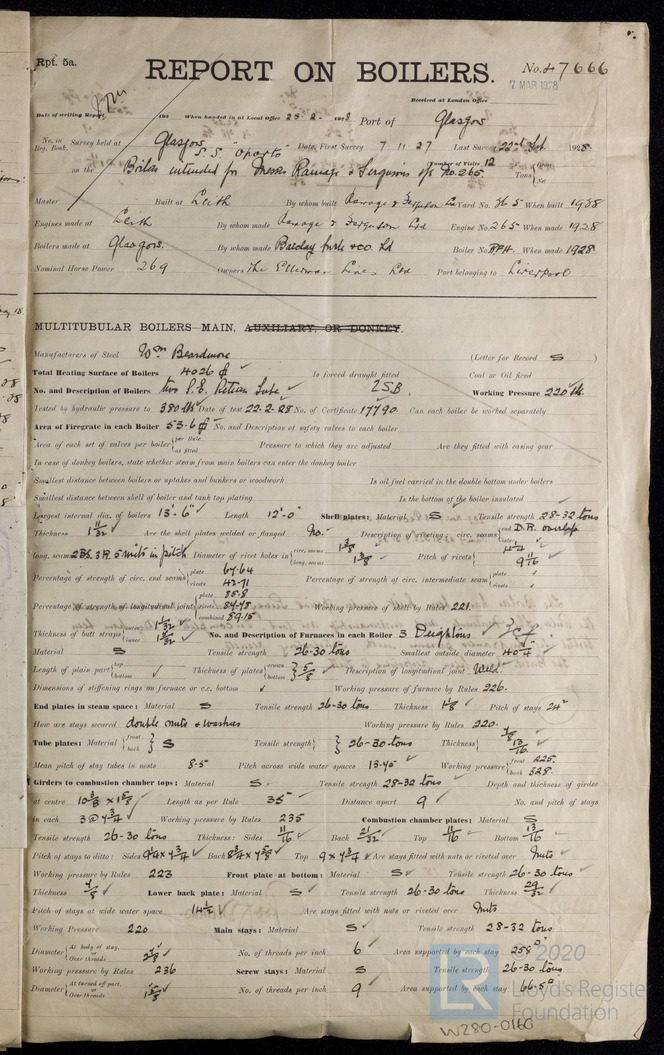 Rpt. 5a.
REPORT ON BOILERS.
No. 47666
7 MAR 1928
Received at London Office
Date of writing Report 192 When handed in at Local Office 23.2.1928 Port of Glasgow
No. in Reg. Book. Survey held at Glasgow Date, First Survey 7 11 27 Last Survey 22nd Feb 1928
S.S. "Oporto" (Number of Visits 12
on the Boilers intended for Messrs Ramage & Ferguson's s/s No. 265 Tons { Gross Net
Master Built at Leith By whom built Ramage & Ferguson Ld Yard No. 265 When built 1928
Engines made at Leith By whom made Ramage & Ferguson Ltd Engine No. 265 When made 1928
Boilers made at Glasgow. By whom made Barclay Curle & Co. Ld Boiler No. When made 1928
Nominal Horse Power 269 Owners The Ellerman Lines Ltd Port belonging to Liverpool
MULTITUBULAR BOILERS—MAIN, AUXILIARY, OR DONKEY.
Manufacturers of Steel Wm Beardmore (Letter for Record S )
Total Heating Surface of Boilers 4026 Is forced draught fitted Coal or Oil fired
No. and Description of Boilers two S.E. Return Tube 2SB. Working Pressure 220 lb.
Tested by hydraulic pressure to 380 lb Date of test 22-2-28 No. of Certificate 17790 Can each boiler be worked separately
Area of Firegrate in each Boiler 53.6 No. and Description of safety valves to each boiler
Area of each set of valves per boiler { per Rule as fitted Pressure to which they are adjusted Are they fitted with easing gear
In case of donkey boilers, state whether steam from main boilers can enter the donkey boiler
Smallest distance between boilers or uptakes and bunkers or woodwork Is oil fuel carried in the double bottom under boilers
Smallest distance between shell of boiler and tank top plating Is the bottom of the boiler insulated
Largest internal dia. of boilers 13'-6" Length 12'-0" Shell plates: Material S Tensile strength 28-32 tons
Thickness 1 11/32 Are the shell plates welded or flanged No. Description of riveting: circ. seams { end D.R. overlap inter
long. seams 2BS. 3R. 5 rivets in pitch Diameter of rivet holes in { circ. seams 1 3/8 long. seams 1 3/8 Pitch of rivets { 9 11/16
Percentage of strength of circ. end seams { plate 67.64 rivets 42.71 Percentage of strength of circ. intermediate seam { plate rivets
Percentage of strength of longitudinal joint { plate 85.8 rivets combined Working pressure of shell by Rules 221.
Thickness of butt straps { outer inner No. and Description of Furnaces in each Boiler 3 Deightons
Material S Tensile strength 26-30 tons Smallest outside diameter
Length of plain part { top bottom Thickness of plates { crown bottom } 5/8 Description of longitudinal joint Weld.
Dimensions of stiffening rings on furnace or c.c. bottom Working pressure of furnace by Rules 226.
End plates in steam space: Material S Tensile strength 26-30 tons Thickness 1 1/8 Pitch of stays 24"
How are stays secured double nuts & washers Working pressure by Rules 220.
Tube plates: Material { front back } S Tensile strength { } 26-30 tons Thickness { 7/8 13/16
Mean pitch of stay tubes in nests 8.5 Pitch across wide water spaces 13.45 Working pressure { front 225. back 328
Girders to combustion chamber tops: Material S. Tensile strength 28-32 tons Depth and thickness of girder
at centre 10 3/8 x 1 5/8 Length as per Rule 35" Distance apart 9 No. and pitch of stays
in each 3 @ 7 3/4 Working pressure by Rules 235 Combustion chamber plates: Material S
Tensile strength 26-30 tons Thickness: Sides 11/16 Back 21/32 Top 11/16 Bottom 13/16
Pitch of stays to ditto: Sides Back Top 9 x 7 3/4 Are stays fitted with nuts or riveted over Nuts
Working pressure by Rules 223 Front plate at bottom: Material S Tensile strength 26-30 tons
Thickness 7/8 Lower back plate: Material S Tensile strength 26-30 tons Thickness 29/32
Pitch of stays at wide water space 14 1/2 Are stays fitted with nuts or riveted over Nuts
Working Pressure 220 Main stays: Material S Tensile strength 28-32 tons
Diameter { At body of stay, or Over threads No. of threads per inch 6 Area supported by each stay
Working pressure by Rules 236 Screw stays: Material S Tensile strength 26-30 tons
Diameter { At turned off part, or Over threads No. of threads per inch 9 Area supported by each stay 66.5
© 2020
LR
Lloyd's Register
Foundation
W280-0160